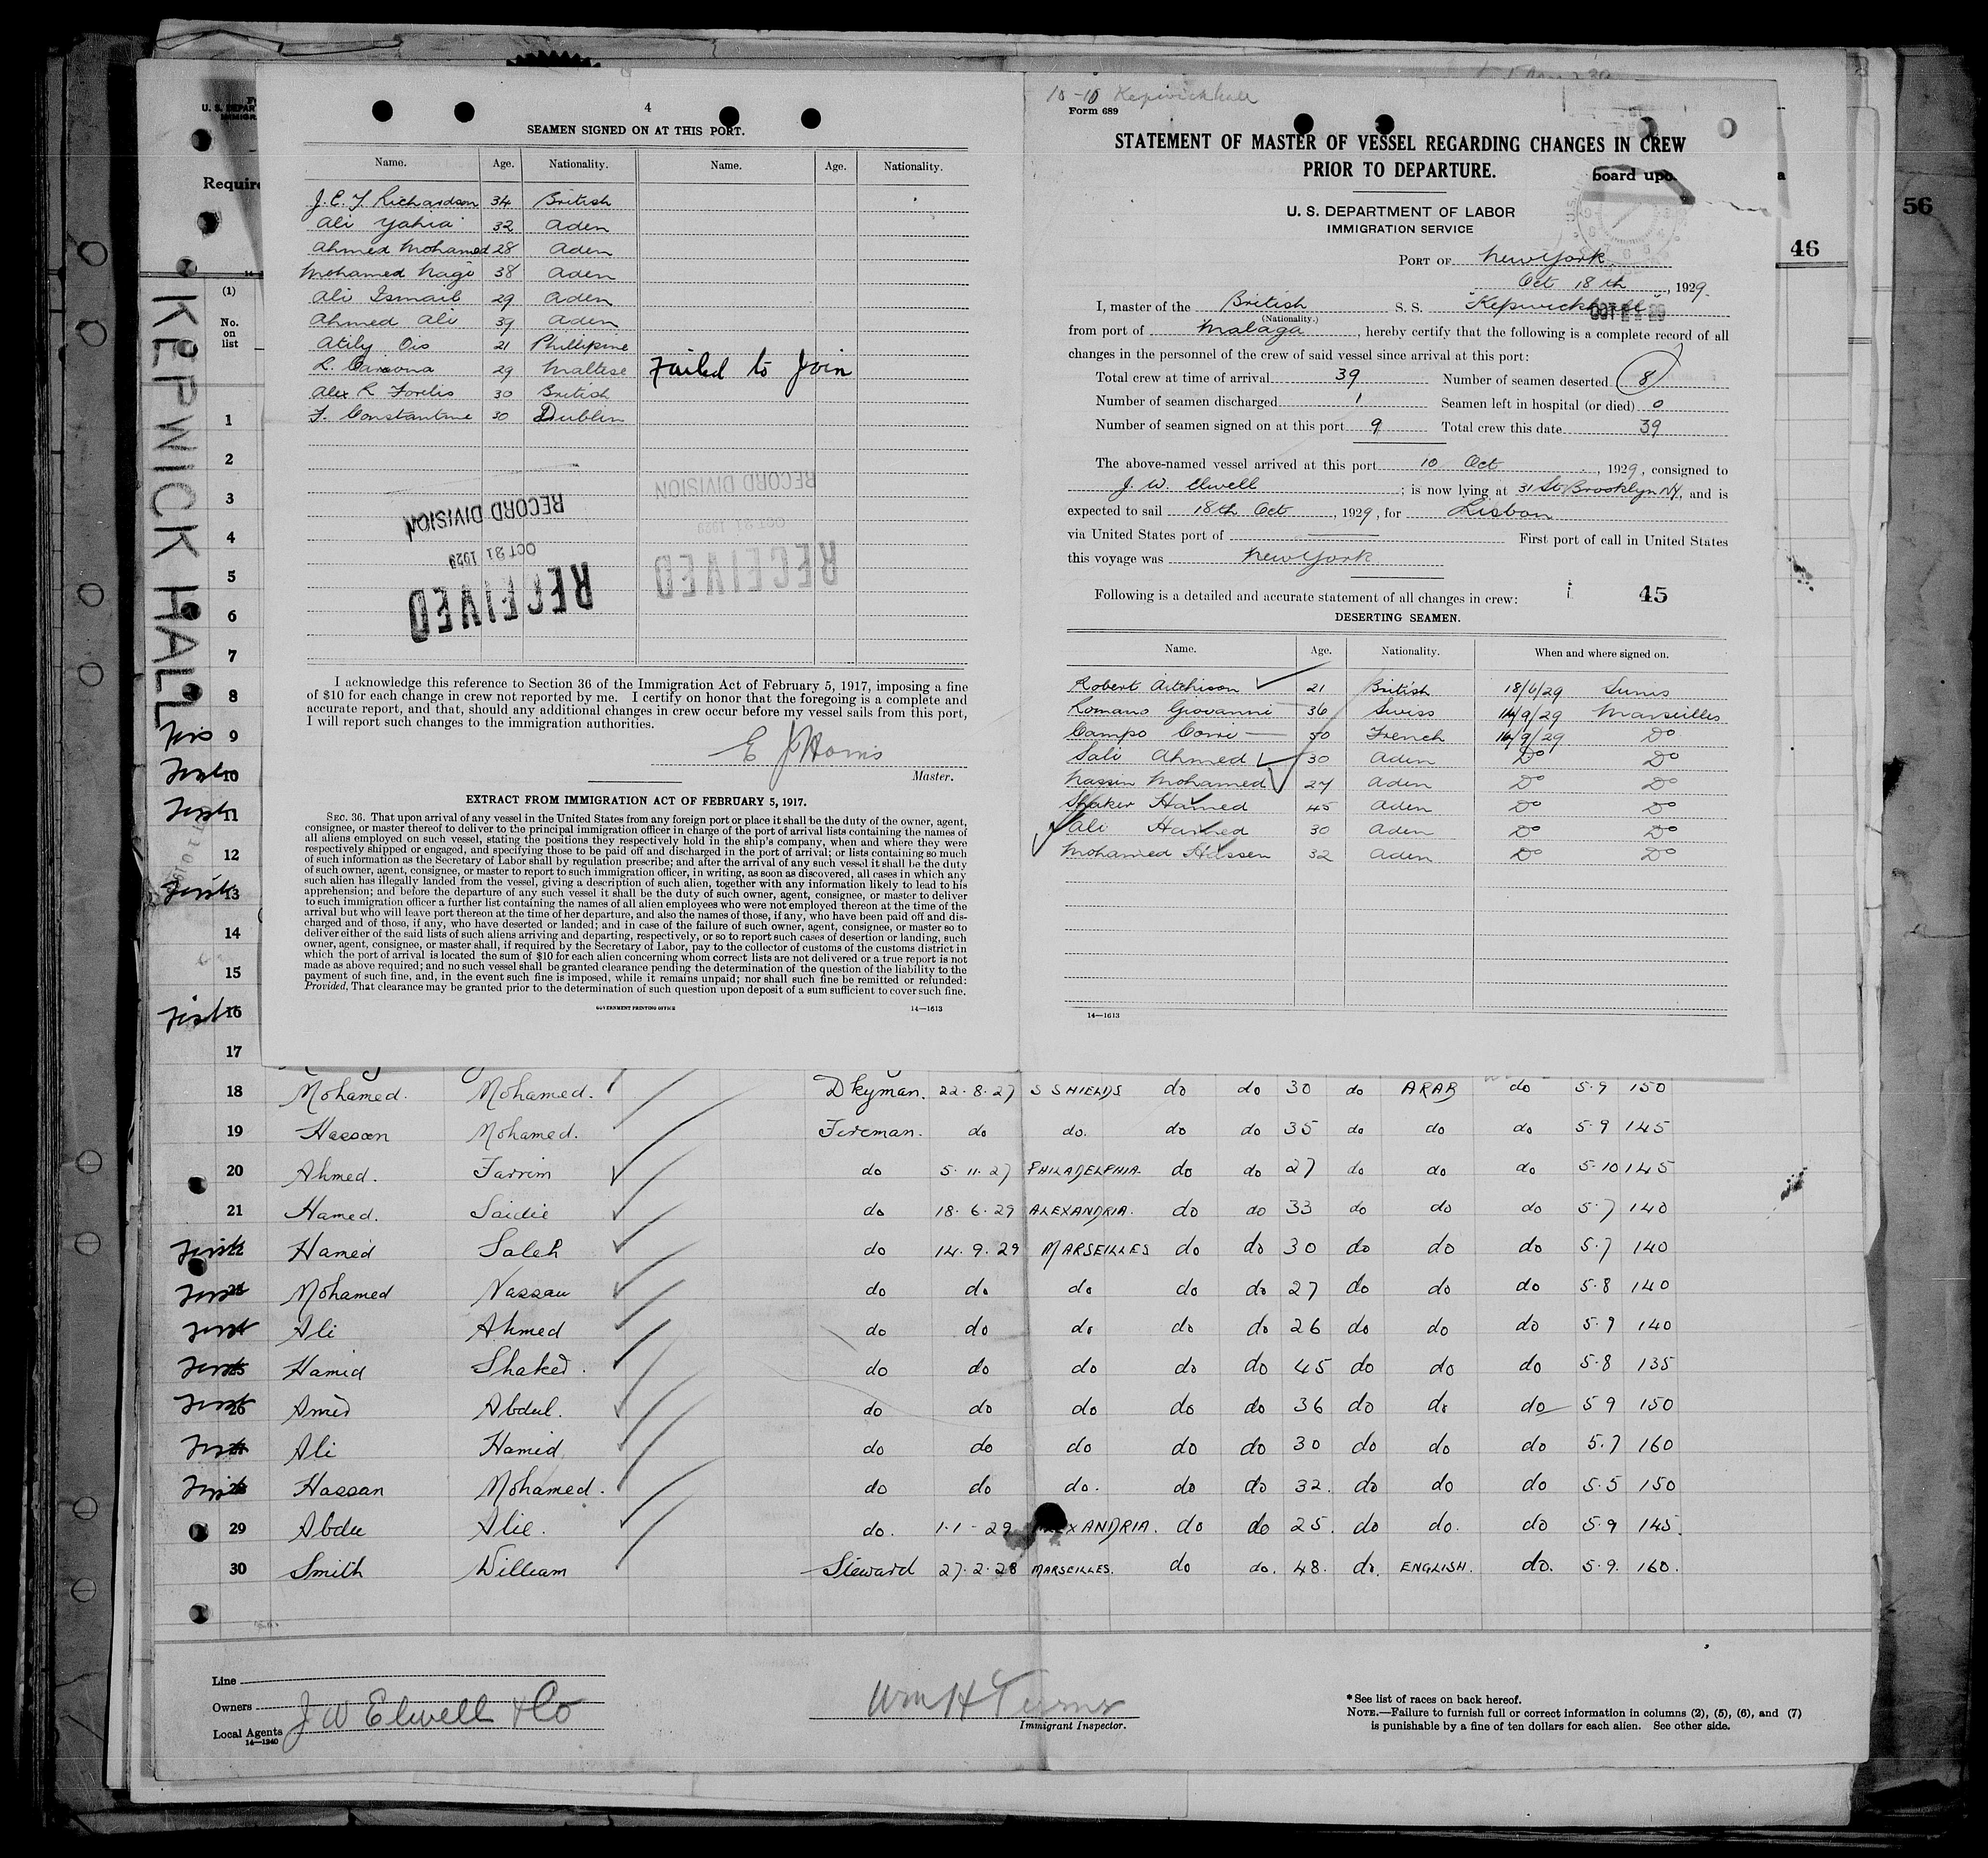 4
SEAMEN SIGNED ON AT THIS PORT.
Name. Age. Nationality. Name. Age. Nationality.
J. E. Y. Richardson 34 British
Ali Yahia 32 Aden
Ahmed Mohamed 28 Aden
Mohamed Nagi 38 Aden
Ali Ismail 29 Aden
Ahmed Ali 39 Aden
Atily Ois 21 Phillipine
L. 29 Maltese Failed to Join
Alex R 30 British
Constantine 30 Dublin
RECORD DIVISION
OCT 21 1929
RECEIVED
RECORD DIVISION
OCT 21 1929
RECEIVED
I acknowledge this reference to Section 36 of the Immigration Act of February 5, 1917, imposing a fine
of $10 for each change in crew not reported by me. I certify on honor that the foregoing is a complete and
accurate report, and that, should any additional changes in crew occur before my vessel sails from this port,
I will report such changes to the immigration authorities.
E J Homis
Master.
EXTRACT FROM IMMIGRATION ACT OF FEBRUARY 5, 1917.
SEC. 36. That upon arrival of any vessel in the United States from any foreign port or place it shall be the duty of the owner, agent,
consignee, or master thereof to deliver to the principal immigration officer in charge of the port of arrival lists containing the names of
all aliens employed on such vessel, stating the positions they respectively hold in the ship's company, when and where they were
respectively shipped or engaged, and specifying those to be paid off and discharged in the port of arrival; or lists containing so much
of such information as the Secretary of Labor shall by regulation prescribe; and after the arrival of any such vessel it shall be the duty
of such owner, agent, consignee, or master to report to such immigration officer, in writing, as soon as discovered, all cases in which any
such alien has illegally landed from the vessel, giving a description of such alien, together with any information likely to lead to his
apprehension; and before the departure of any such vessel it shall be the duty of such owner, agent, consignee, or master to deliver
to such immigration officer a further list containing the names of all alien employees who were not employed thereon at the time of the
arrival but who will leave port thereon at the time of her departure, and also the names of those, if any, who have been paid off and dis-
charged and of those, if any, who have deserted or landed; and in case of the failure of such owner, agent, consignee, or master so to
deliver either of the said lists of such aliens arriving and departing, respectively, or so to report such cases of desertion or landing, such
owner, agent, consignee, or master shall, if required by the Secretary of Labor, pay to the collector of customs of the customs district in
which the port of arrival is located the sum of $10 for each alien concerning whom correct lists are not delivered or a true report is not
made as above required; and no such vessel shall be granted clearance pending the determination of the question of the liability to the
payment of such fine, and, in the event such fine is imposed, while it remains unpaid; nor shall such fine be remitted or refunded:
Provided, That clearance may be granted prior to the determination of such question upon deposit of a sum sufficient to cover such fine.
GOVERNMENT PRINTING OFFICE 14—1613
10-10 Kepwickhall
Form 689
STATEMENT OF MASTER OF VESSEL REGARDING CHANGES IN CREW
PRIOR TO DEPARTURE.
board upo
U. S. DEPARTMENT OF LABOR
IMMIGRATION SERVICE
PORT OF New York
Oct 18th, 1929.
I, master of the British S. S. "Kepwickhall"
(Nationality.)
from port of Malaga, hereby certify that the following is a complete record of all
changes in the personnel of the crew of said vessel since arrival at this port:
Total crew at time of arrival 39 Number of seamen deserted 8
Number of seamen discharged 1 Seamen left in hospital (or died) 0
Number of seamen signed on at this port 9 Total crew this date 39
The above-named vessel arrived at this port 10 Oct, 1929, consigned to
J. W. Elwell; is now lying at 31 St. Brooklyn NY, and is
expected to sail 18th Oct, 1929, for Lisbon
via United States port of First port of call in United States
this voyage was New York
Following is a detailed and accurate statement of all changes in crew: 45
DESERTING SEAMEN.
Name. Age. Nationality. When and where signed on.
Robert Aitchison 21 British 18/6/29
Romano Giovanni 36 Swiss 14/9/29 Marseilles
Campo 30 French 14/9/29 Do
Sali Ahmed 30 Aden Do Do
Nassin Mohamed 27 Aden Do Do
Shaker Hamed 45 Aden Do Do
Ali Hamed 30 Aden Do Do
Mohamed Hassen 32 Aden Do Do
14—1613
56
46
U. S. DEPAR
IMMIGRA
Require
KEPWICK HALL
(1)
No.
on
list
1
2
3
4
5
6
7
8
First 9
First 10
First 11
12
First 13
14
15
First 16
17
18 Mohamed. Mohamed. Dkyman. 22.8.27 S SHIELDS do do 30 do ARAB do 5.9 150
19 Hassan Mohamed. Fireman. do do. do do 35 do do do 5.9 145
20 Ahmed. Farrim do 5.11.27 PHILADELPHIA. do do 27 do do do 5.10 145
21 Hamed. Saidie do 18.6.29 ALEXANDRIA. do do 33 do do do 5.7 140
First 22 Hamed Saleh do 14.9.29 MARSEILLES do do 30 do do do 5.7 140
First Mohamed Nassau do do do do do 27 do do do 5.8 140
First Ali Ahmed do do do do do 26 do do do 5.9 140
First 25 Hamid Shaked. do do do do do 45 do do do 5.8 135
First 26 Amed Abdul. do do do do do 36 do do do 5 9 150
First Ali Hamid do do do do do 30 do do do 5.7 160
First 28 Hassan Mohamed. do do do. do do 32. do do do 5.5 150
29 Abdu Alie. do. 1.1-29 ALEXANDRIA. do do 25. do do. do 5.9 145.
30 Smith William Steward 27.2.28 MARSEILLES. do do. 48. do. ENGLISH. do. 5.9. 160.
Line
Owners
Local Agents J W Elwell & Co
14—1240
Wm H Turner
Immigrant Inspector.
*See list of races on back hereof.
NOTE.—Failure to furnish full or correct information in columns (2), (5), (6), and (7)
is punishable by a fine of ten dollars for each alien. See other side.